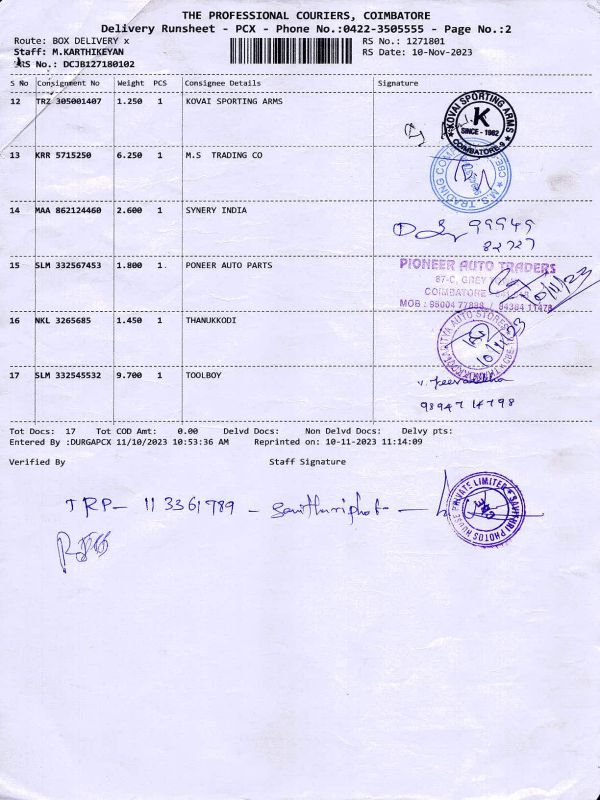 THE PROFESSIONAL COURIERS, COIMBATORE
Delivery Runsheet - PCX - Phone No.:0422-3505555 - Page No.:2
Route: BOX DELIVERY x RS No.: 1271801
Staff: M.KARTHIKEYAN RS Date: 10-Nov-2023
RS No.: DCJB127180102
S No Consignment No Weight PCS Consignee Details Signature
12 TRZ 305001407 1.250 1 KOVAI SPORTING ARMS
KOVAI SPORTING ARMS
K
SINCE - 1982
COIMBATORE-9
13 KRR 5715250 6.250 1 M.S TRADING CO
M.S. TRADING
14 MAA 862124460 2.600 1 SYNERY INDIA
99949
82727
15 SLM 332567453 1.800 1 PONEER AUTO PARTS
PIONEER AUTO TRADERS
87-C, GREY
COIMBATORE
MOB : 95004 77888 / 94364 11478
10/11/23
16 NKL 3265685 1.450 1 THANUKKODI
AUTO STORES
10/11/23
17 SLM 332545532 9.700 1 TOOLBOY
98947 14798
Tot Docs: 17 Tot COD Amt: 0.00 Delvd Docs: Non Delvd Docs: Delvy pts:
Entered By :DURGAPCX 11/10/2023 10:53:36 AM Reprinted on: 10-11-2023 11:14:09
Verified By Staff Signature
TRP- 113361789 - Savithuriphot -
SAVITHRI PHOTOS HOUSE PRIVATE LIMITED